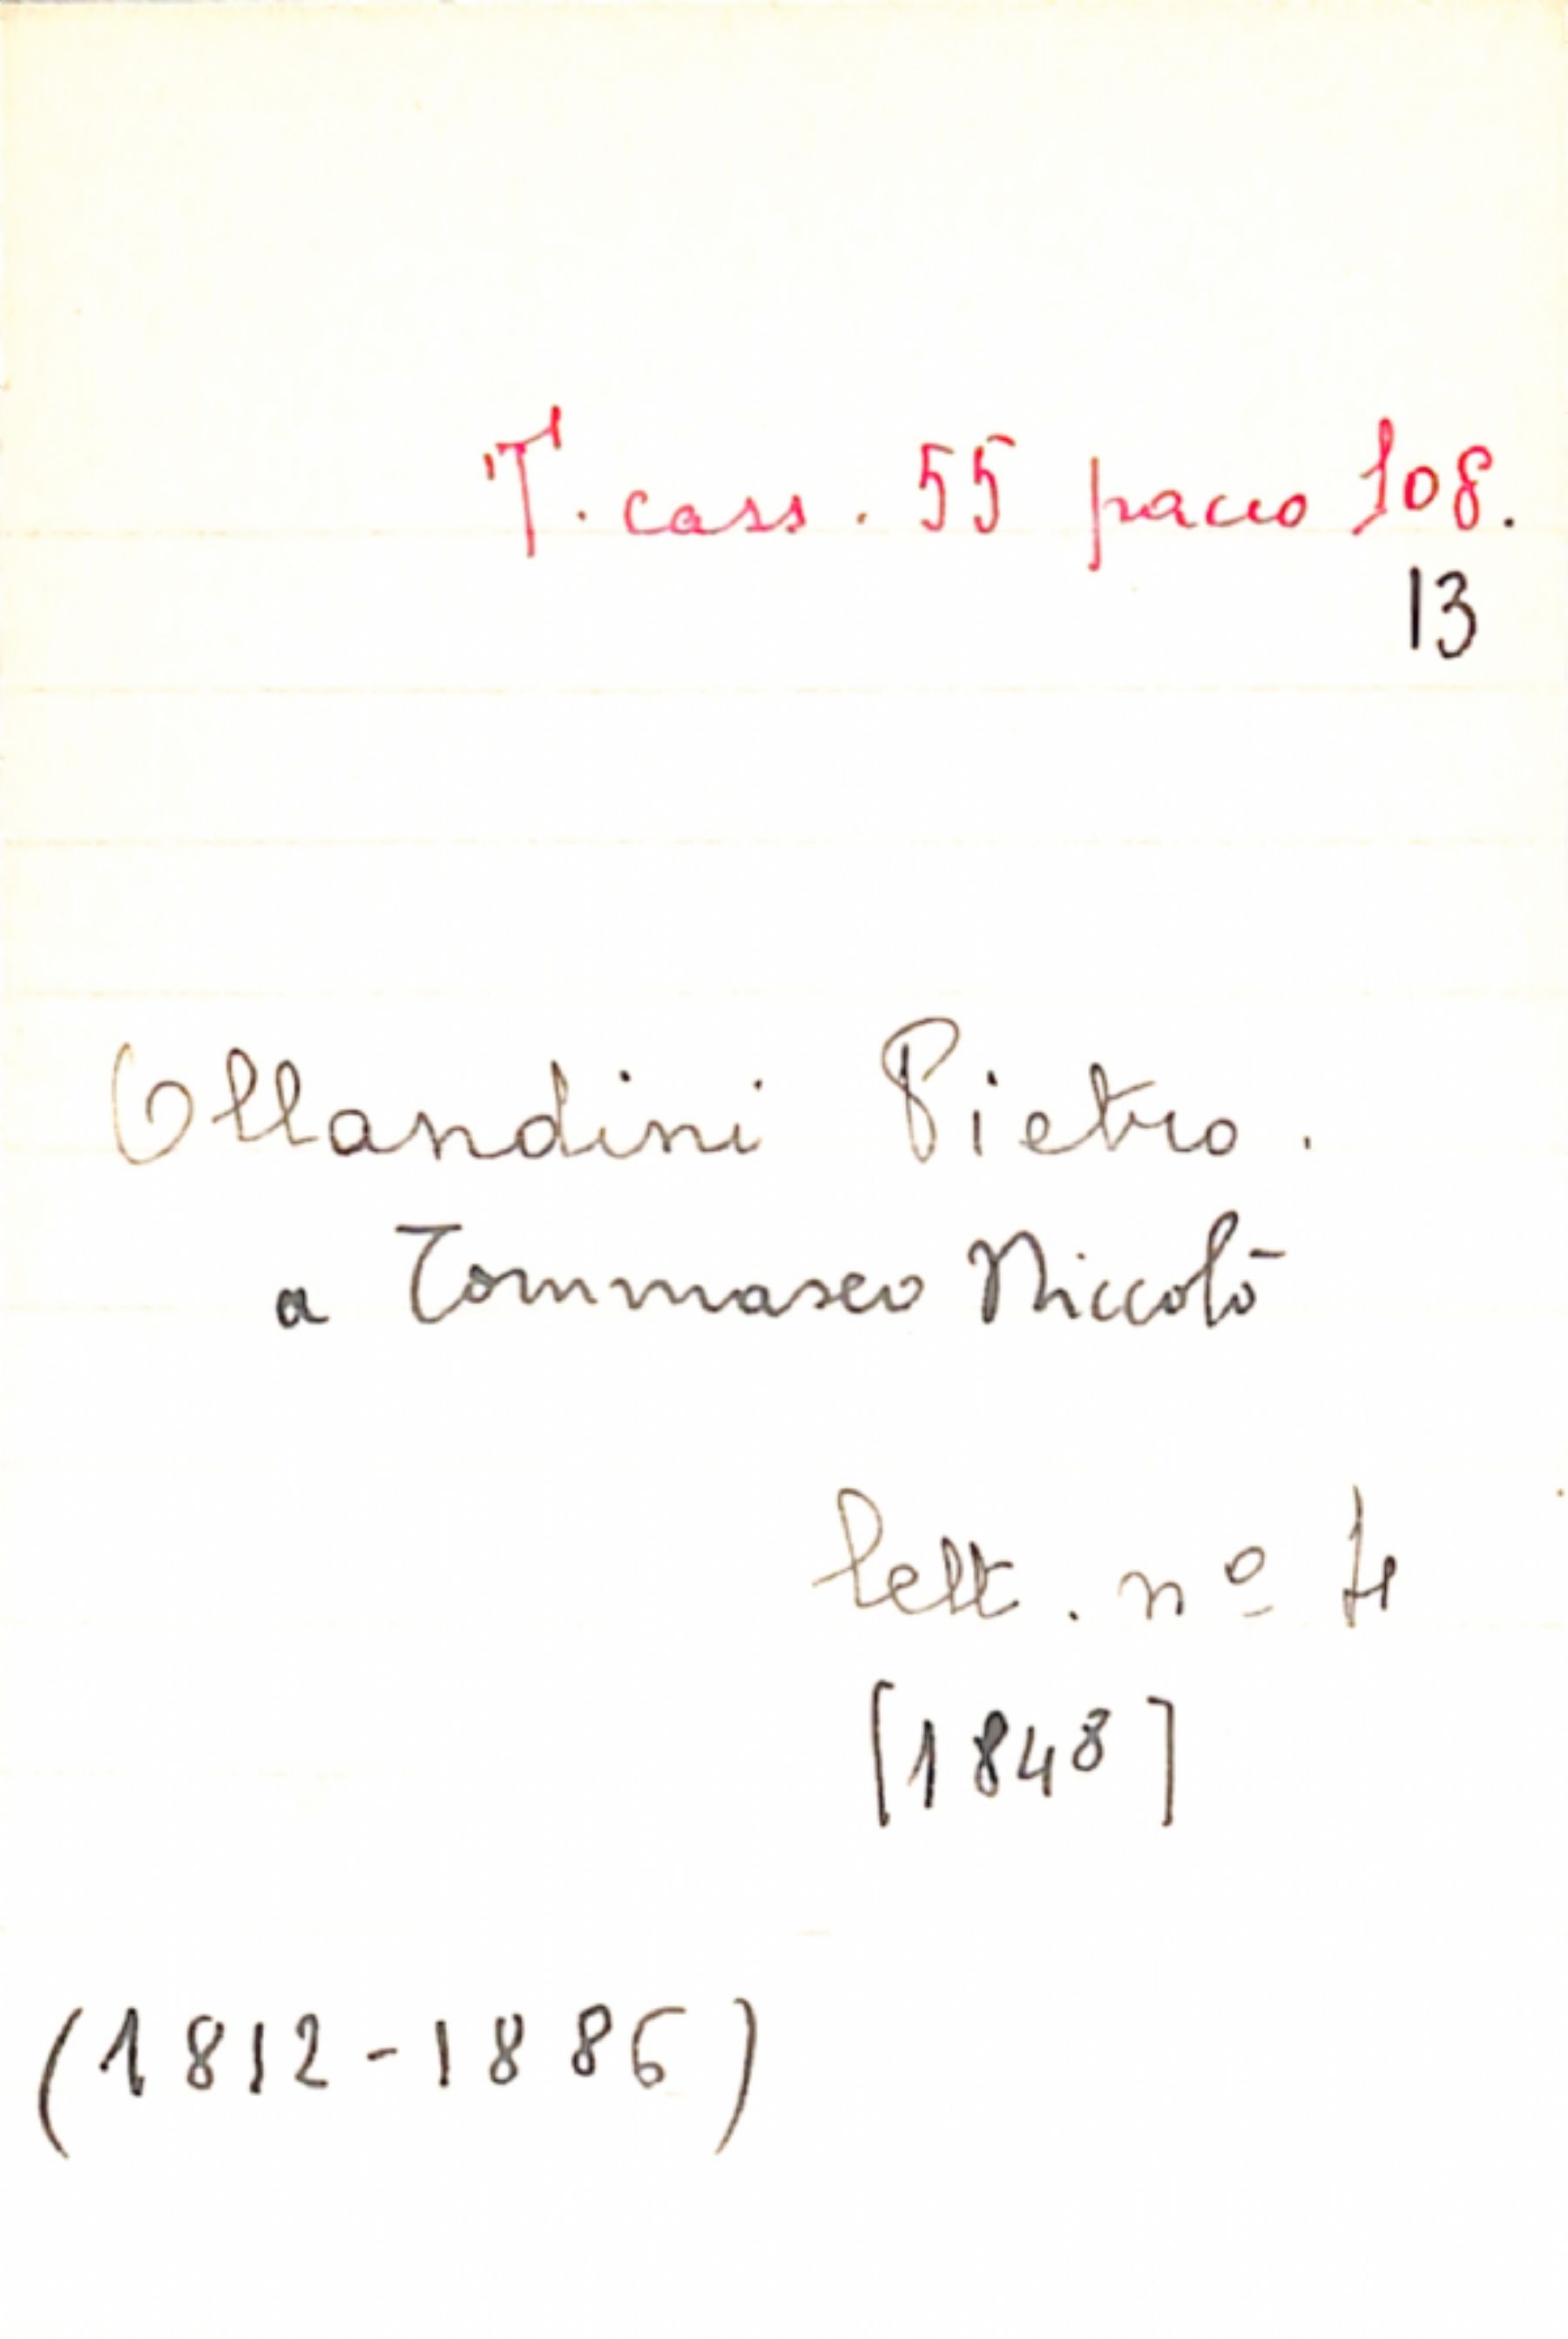 T. cass. 55 pacco 108.
13
Ollandini Pietro.
a Tommaseo Niccolò
lett. nº 4
[1848]
(1812-1886)